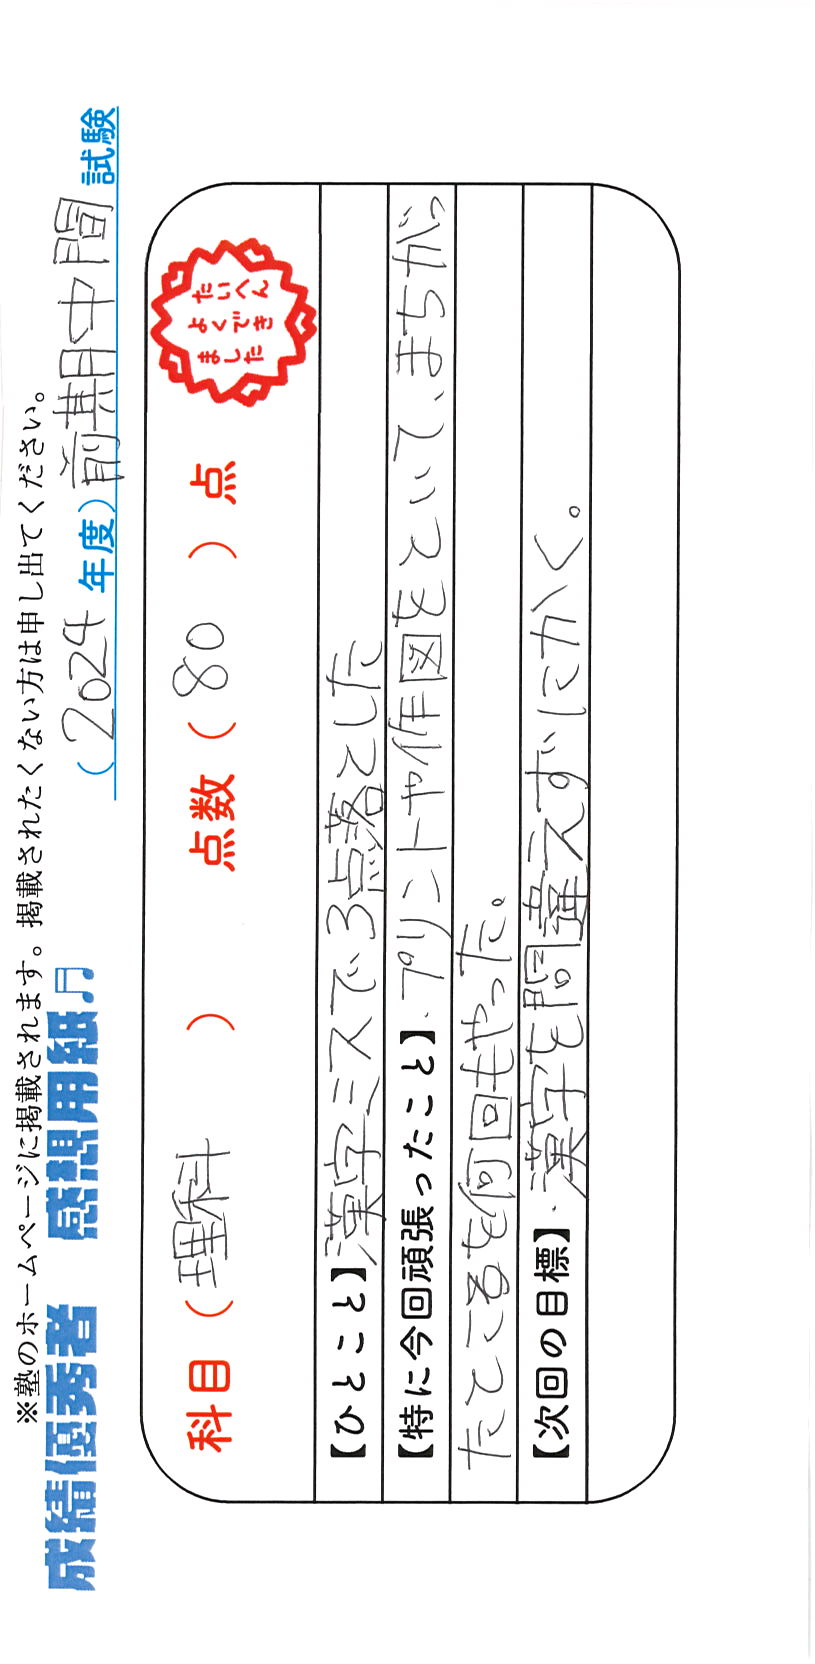 ※塾のホームページに掲載されます。掲載されたくない方は申し出てください。
成績優秀者 感想用紙♫ (2024年度)前期中間試験
科目(理科) 点数(80)点
たいへん
よくでき
ました
【ひとこと】漢字ミスで3点落とした
【特に今回頑張ったこと】・プリントや付図もつかいまちがい
たところを何回もやった。
【次回の目標】・漢字を間違えずにかく。